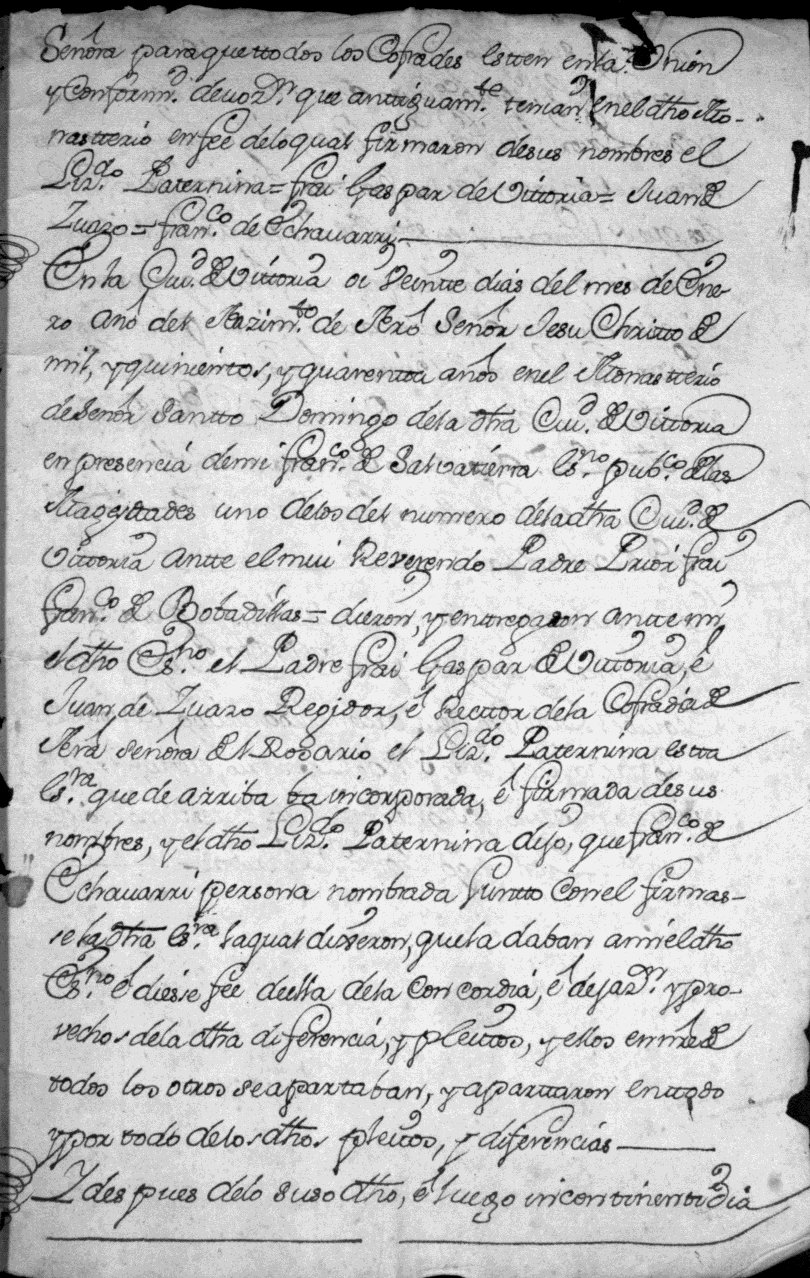 Señora para que ttodos los Cofrades estten en la Union
y Conformd. devozn. que anttiguamte. tenian en el dho Mo-
nastterio en fee delo qual firmaron desus nombres el
Lizdo. Paternina = frai Gaspar de Vittoria = Juan de
Zuazo = franco. de Echavarri
En la Ciud. de Vittoria a Veintte dias del mes de Ene-
ro Año del Nazimto. de Nro Señor Jesu Christto de
mil, y quinientos, y quarentta años en el Monastterio
de Señor Santto Domingo dela dha Ciud. de Vittoria
en presencia de mi franco. de Salvatierra Esno. pubco. de las
Magesttades uno delos del numero dela dha Ciud. de
Vittoria antte el mui Reverendo Padre Prior frai
franco. de Bobadillas = dieron, y entregaron antte mi
el dho Esno. el Padre frai Gaspar de Vittoria, é
Juan de Zuazo Regidor, é Recttor dela Cofradia de
Nra Señora del Rosario el Lizdo. Paternina estta
Esra. que de arriba va incorporada, é firmada desus
nombres, y el dho Lizdo. Paternina dijo, que franco. de
Echavarri persona nombrada Juntto con el firmas-
se la dha Esra. la qual dixeron, que la daban a mi el dho
Esno. é diesse fee de ella dela Concordia, é dejazn. y pro-
vechos dela dha diferencia, y pleittos, y ellos en nre. de
todos los otros se apartaban, y aparttaron en ttodo
y por todo delos dhos pleitos, y diferencias
Y despues delo suso dho, é luego incontinenti dia